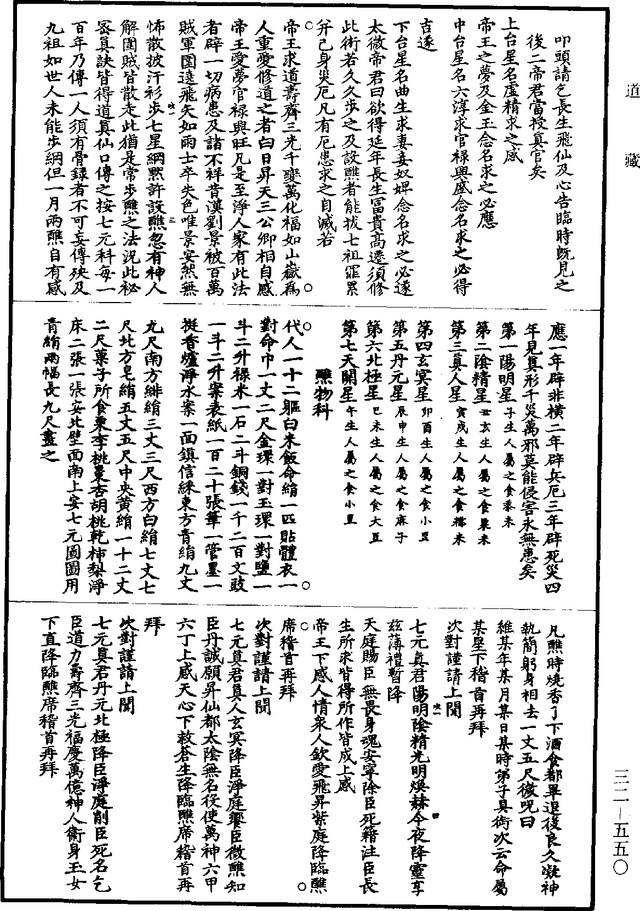 道藏
叩頭請乞長生飛仙及心告臨時既見之
後二帝君當授真官矣
上台星名虛精求之感
帝王之夢及金玉念名求之必應
中台星名六淳求官祿興盛念名求之必得
吉遂
下台星名曲生求妻妾奴婢念名求之必遂
太微帝君曰欲得延年長生富貴高遷須修
此術若久久步之及設醮者能拔七祖罪累
并己身災厄凡有厄患求之自滅若
帝王求道壽齊三光千變萬化福如山嶽為
人重愛修道之者白日昇天三公卿相自感
帝王愛夢官祿興旺凡是至淨人家有此法
者辟一切病患及諸不祥昔漢劉景被百萬
賊軍圍遶飛矢如雨士卒失色唯景安然無
怖散披汗衫步七星綱默許設醮忽有神人
解圍賊皆散走此猶是常步醮之法況此祕
密真訣皆得道真仙口傳之按七元科每一
百年乃傳一人須有骨錄者不可妄傳殃及
九祖如世人未能步綱但一月兩醮自有感
應一年辟非橫二年辟兵厄三年辟死災四
年見真形千災萬邪莫能侵害永無患矣
第一陽明星子生人屬之食黍米
第二陰精星丑亥生人屬之食粟米
第三真人星寅戌生人屬之食糯米
第四玄冥星卯酉生人屬之食小豆
第五丹元星辰申生人屬之食麻子
第六北極星巳未生人屬之食大豆
第七天關星午生人屬之食小豆
醮物科
代人一十二軀白米飯命絹一匹貼體衣一
對命巾一丈二尺金環一對玉環一對鹽一
斗二升祿米一石二斗銅錢一千二百文豉
一斗二升案表紙一百二十張筆一管墨一
挺香爐淨水案一面鎮信綵東方青絹九丈
九尺南方緋絹三丈三尺西方白絹七丈七
尺北方皂絹五丈五尺中央黃絹一十二丈
二尺菓子所食棗李桃栗杏胡桃乾柿梨淨
床二張一張安北壁面南上安七元圖圖用
青絹兩幅長九尺畫之
凡醮時燒香了下酒食都畢退後良久凝神
執簡躬身相去一丈五尺微呪曰
維某年某月某日某時弟子具銜次云命屬
某星下稽首再拜
次對謹請上聞
七元真君陽明陰精光明煥赫今夜降靈享
茲薄禮暫降
天庭賜臣無畏身魂安寧除臣死籍注臣長
生所求皆得所作皆成上感
帝王下感人情衆人欽愛飛昇紫庭降臨醮
席稽首再拜
次對謹請上聞
七元真君真人玄冥降臣淨庭饗臣微醮知
臣丹誠願昇仙都太陰無名役使萬神六甲
六丁上感天心下救蒼生降臨醮席稽首再
拜
次對謹請上聞
七元真君丹元北極降臣淨庭削臣死名乞
臣道力壽齊三光福慶萬億神人衛身玉女
下直降臨醮席稽首再拜
三二—五五〇